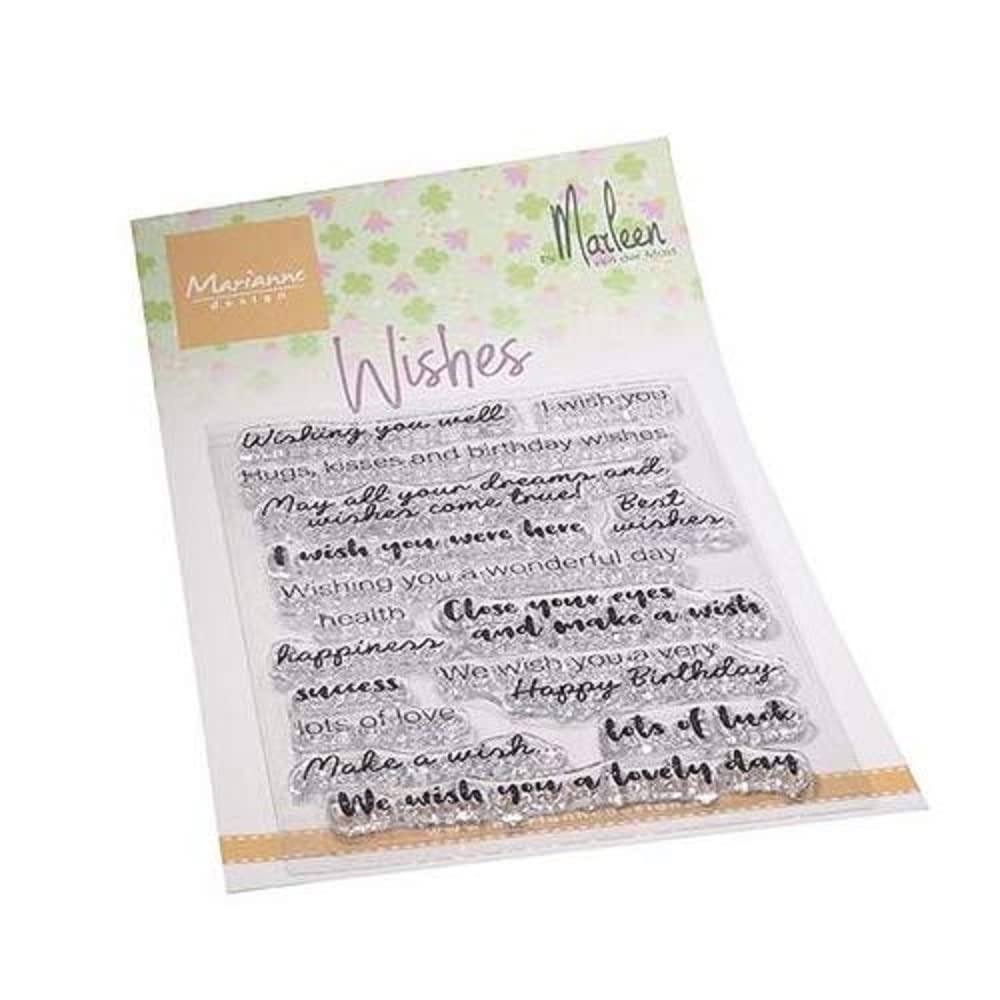 Marianne
design
by Marleen
van der Most
Wishes
Wishing you well
I wish you
Hugs, kisses and birthday wishes
May all your dreams and
wishes come true!
Best
wishes
I wish you were here
Wishing you a wonderful day
health
Close your eyes
and make a wish
happiness
We wish you a very
Happy Birthday
success
lots of love
lots of luck
Make a wish...
We wish you a lovely day